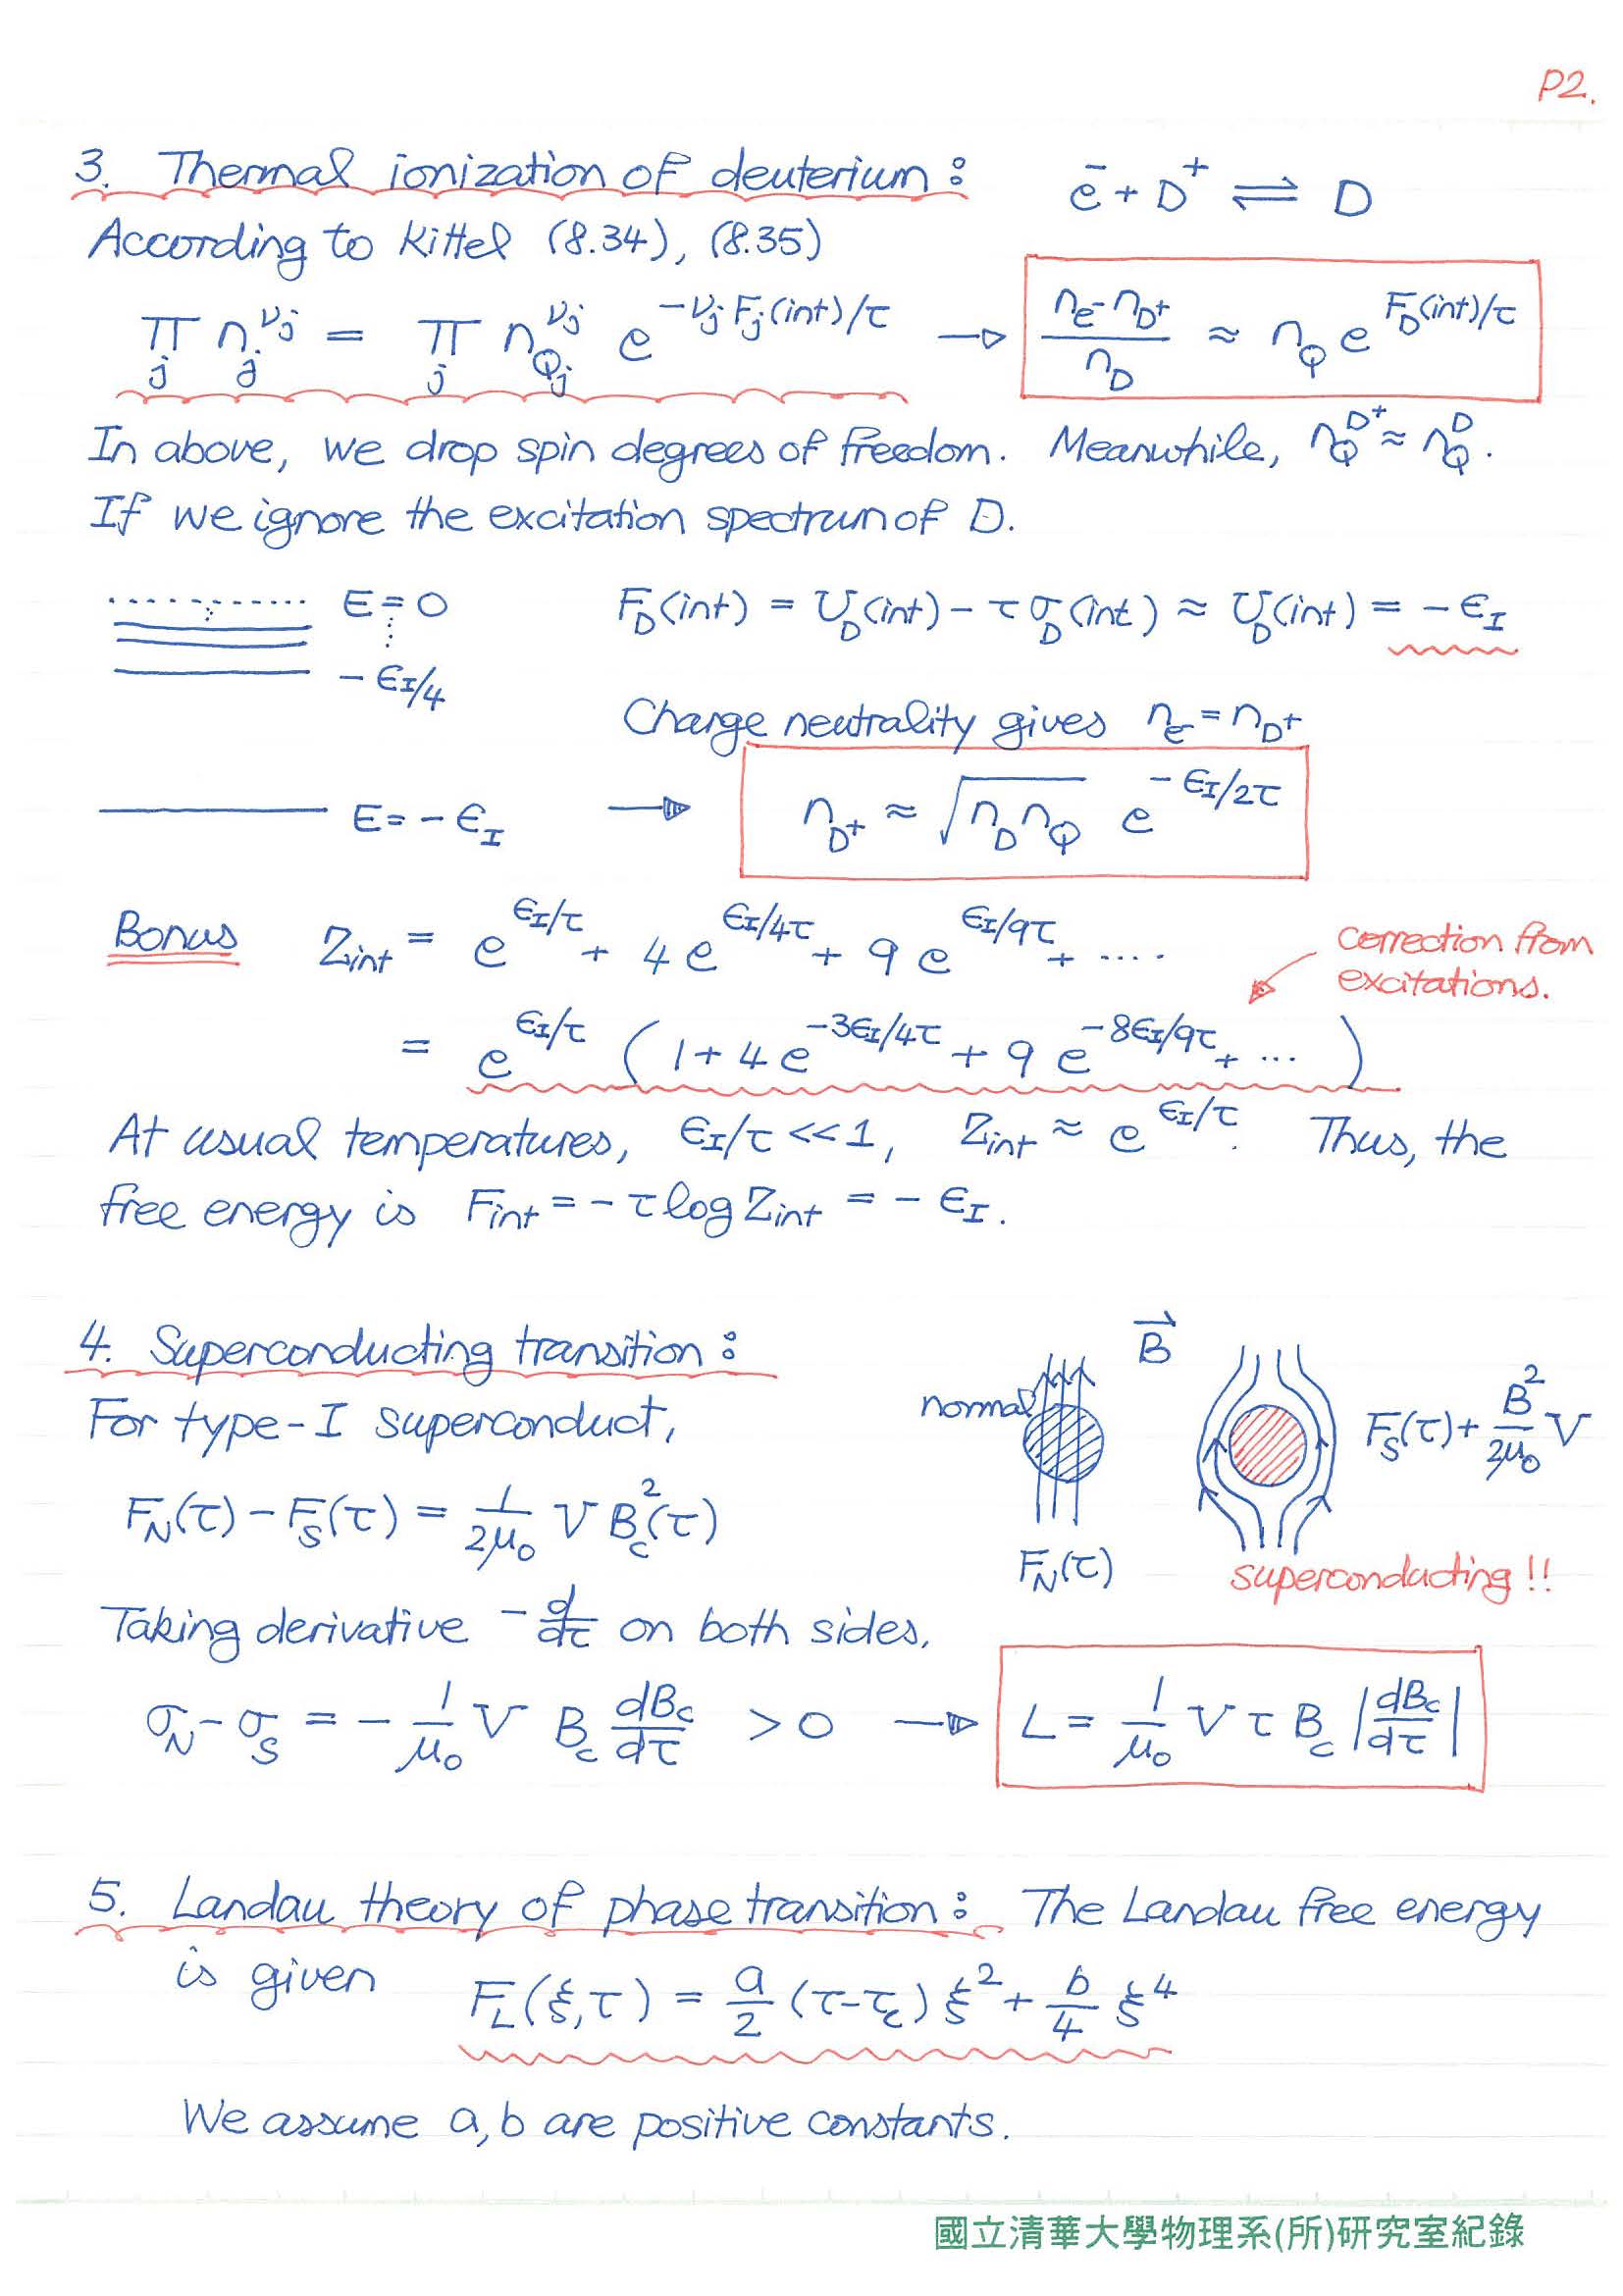 P2.
3. Thermal ionization of deuterium: e⁻ + D⁺ ⇌ D
According to Kittel (8.34), (8.35)
∏_j n_j^{ν_j} = ∏_j n_{Qj}^{ν_j} e^{-ν_j F_j(int)/τ} → n_{e⁻} n_{D⁺} / n_D ≈ n_Q e^{F_D(int)/τ}
In above, we drop spin degrees of freedom. Meanwhile, n_Q^{D⁺} ≈ n_Q^D.
If we ignore the excitation spectrum of D.
E = 0
F_D(int) = U_D(int) - τσ_D(int) ≈ U_D(int) = -ϵ_I
-ϵ_I/4
Charge neutrality gives n_{e⁻} = n_{D⁺}
E = -ϵ_I → n_{D⁺} ≈ √(n_D n_Q) e^{-ϵ_I/2τ}
Bonus Z_int = e^{ϵ_I/τ} + 4 e^{ϵ_I/4τ} + 9 e^{ϵ_I/9τ} + ....
correction from
excitations.
= e^{ϵ_I/τ} (1 + 4 e^{-3ϵ_I/4τ} + 9 e^{-8ϵ_I/9τ} + ... )
At usual temperatures, ϵ_I/τ << 1, Z_int ≈ e^{ϵ_I/τ}. Thus, the
free energy is F_int = -τ log Z_int = -ϵ_I.
4. Superconducting transition:
B⃗
For type-I superconduct,
normal
F_S(τ) + B²/2μ₀ V
F_N(τ) - F_S(τ) = 1/2μ₀ V B_c²(τ)
F_N(τ)
superconducting!!
Taking derivative -d/dτ on both sides,
σ_N - σ_S = -1/μ₀ V B_c dB_c/dτ > 0 → L = 1/μ₀ V τ B_c |dB_c/dτ|
5. Landau theory of phase transition: The Landau free energy
is given F_L(ξ,τ) = a/2 (τ-τ_c) ξ² + b/4 ξ⁴
We assume a, b are positive constants.
國立清華大學物理系(所)研究室紀錄